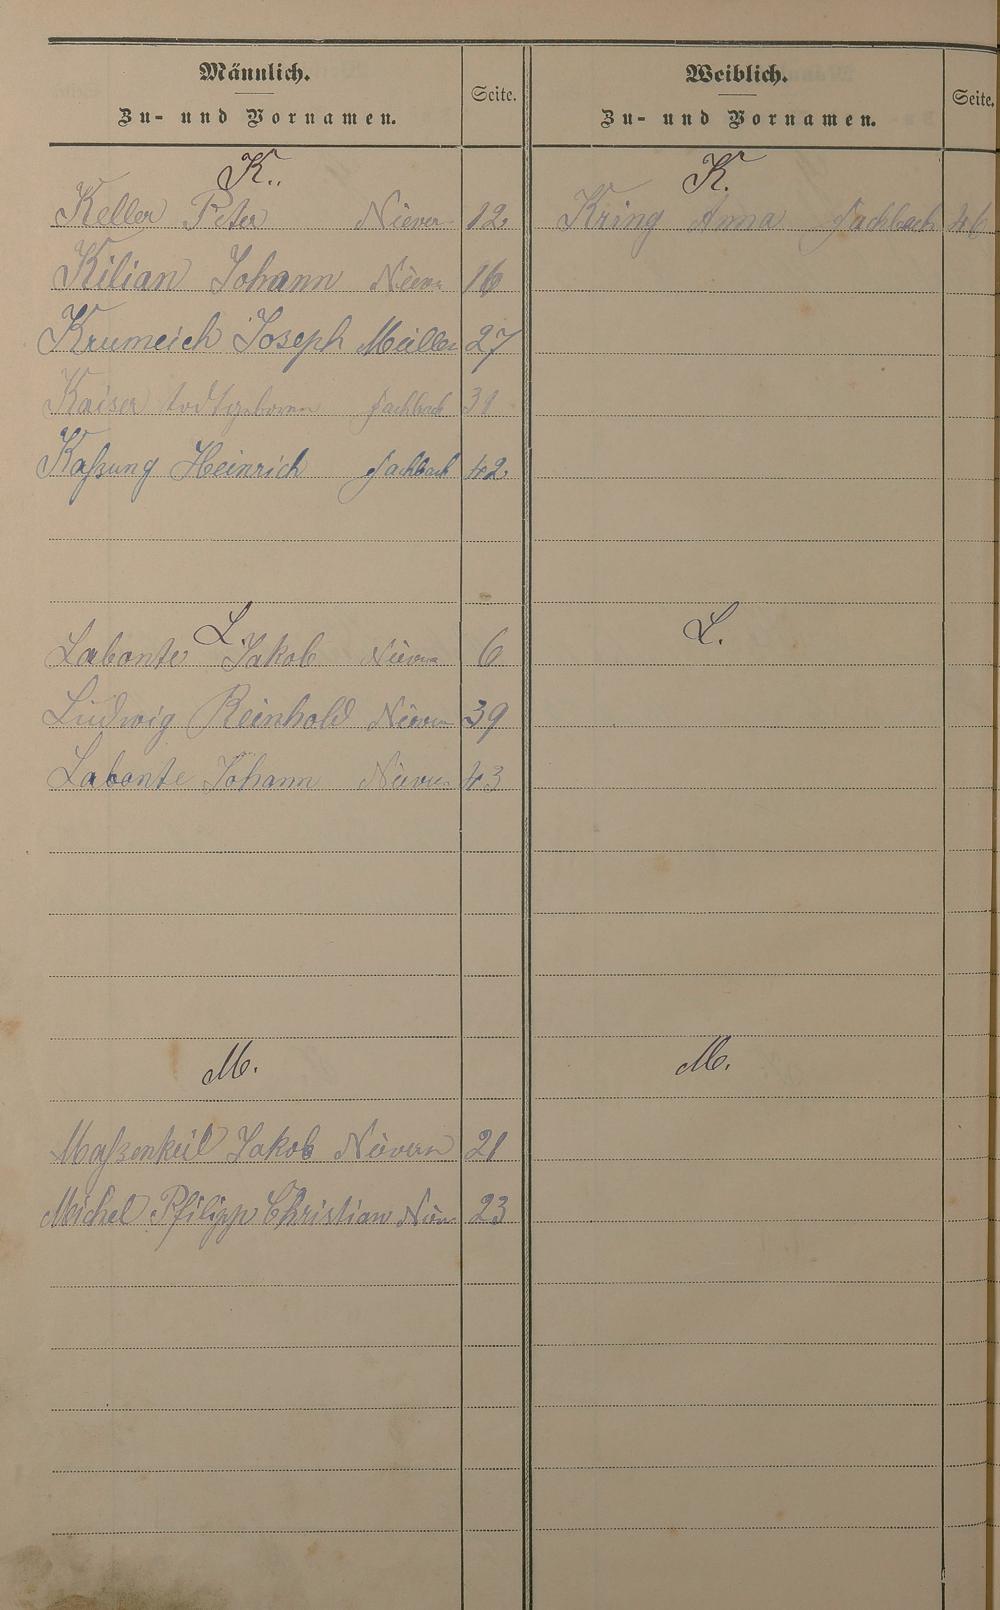 Männlich.
Zu- und Vornamen.
Seite.
Weiblich.
Zu- und Vornamen.
Seite.
K.. K.
Keller Peter Nievern 12 Kring Anna Fachbach 46
Kilian Johann Nievern 16
Krumeich Joseph Müller 27
Kaiser todtgeboren Fachbach 31
Kaßung Heinrich Fachbach 42
L. L.
Labonte Jakob Nievern 6
Ludwig Reinhold Nievern 39
Labonte Johann Nievern 43
M. M.
Maßenkeil Jakob Nievern 21
Michel Philipp Christian Niev. 23